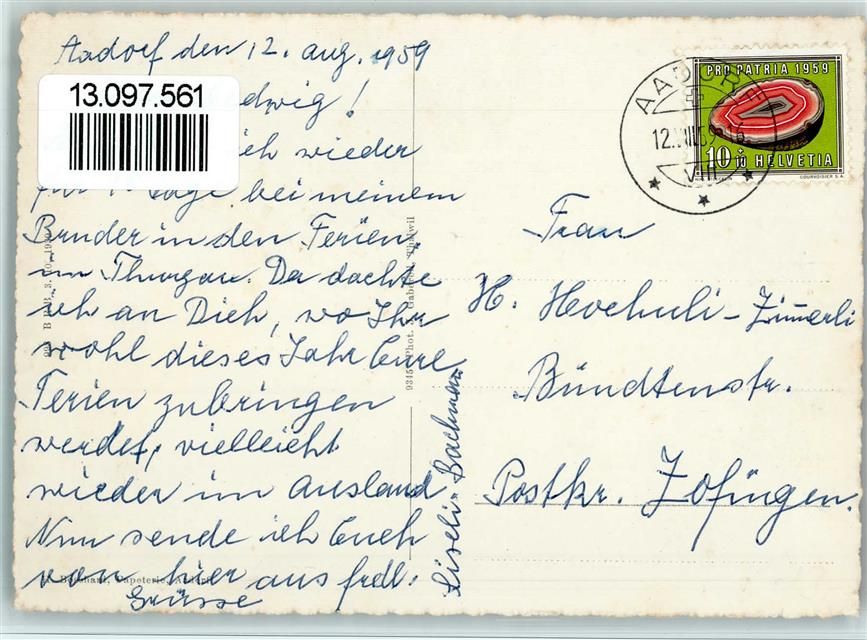 Aadorf den 12. Aug. 1959
13.097.561
dwig!
ich wieder
Tage bei meinem
Bruder in den Ferien,
im Thurgau. Da dachte
ich an Dich, wo Ihr
wohl dieses Jahr Eure
Ferien zubringen
werdet, vielleicht
wieder im Ausland
Nun sende ich Euch
von hier aus frdl.
Grüsse
Liseli Bachmann
Papeterie, Aadorf
9345 Phot. Thalwil
PRO PATRIA 1959
10 + 10 HELVETIA
COURVOISIER S.A.
AADORF
12.VIII.59-16
Frau
H. Hochuli-Zimmerli
Bündtenstr.
Postkr. Zofingen.